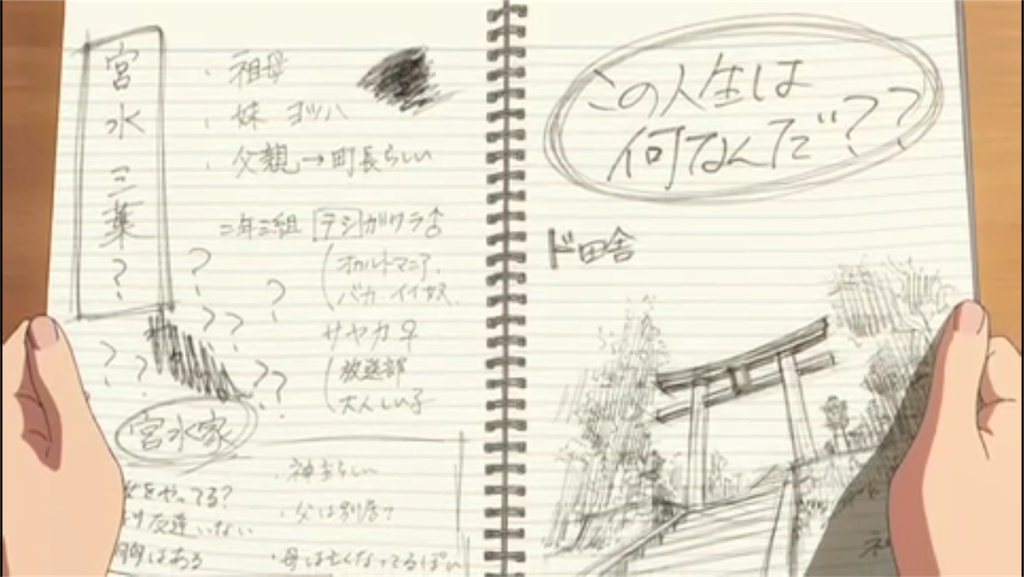 宮水三葉?
・祖母
・妹 ヨツハ
・父親→町長らしい
二年三組 テシガワラ♂
オカルトマニア.
バカ イイ奴.
サヤカ ♀
放送部
大人しい子
?
?
??
??
??
宮水家
をやってる?
友達いない
胸はある
・神主らしい
・父は別居?
・母は亡くなってるぽい
この人生は
何なんだ??
ド田舎